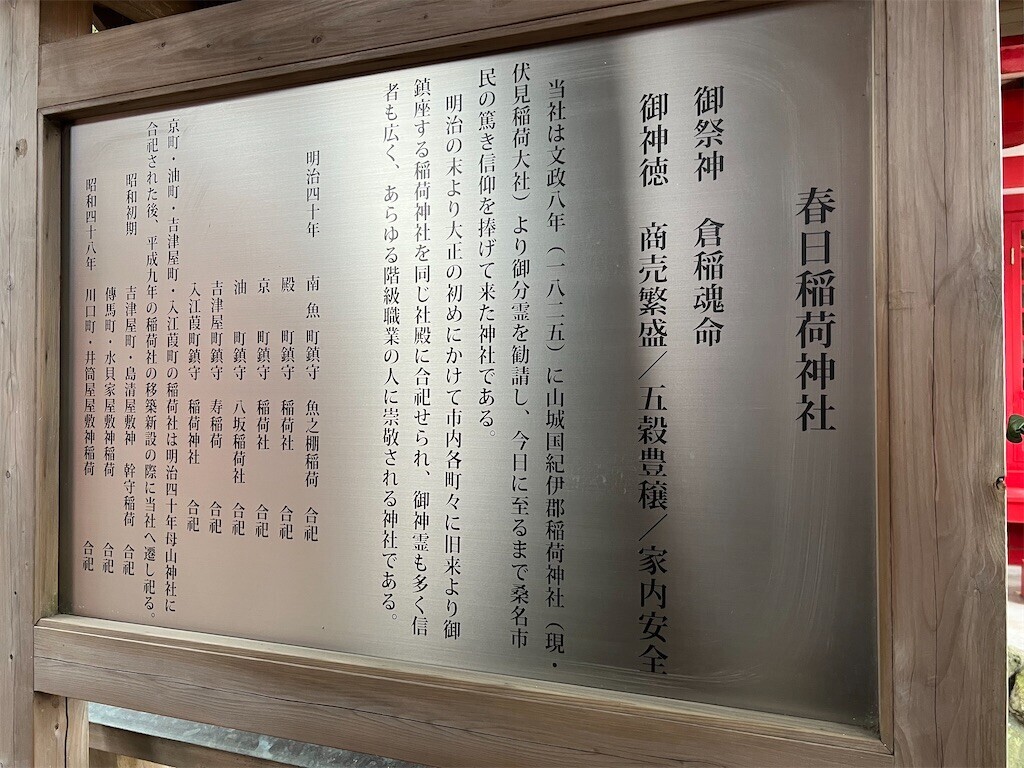 春日稲荷神社
御祭神　倉稲魂命
御神徳　商売繁盛／五穀豊穣／家内安全
当社は文政八年（一八二五）に山城国紀伊郡稲荷神社（現・
伏見稲荷大社）より御分霊を勧請し、今日に至るまで桑名市
民の篤き信仰を捧げて来た神社である。
明治の末より大正の初めにかけて市内各町々に旧来より御
鎮座する稲荷神社を同じ社殿に合祀せられ、御神霊も多く信
者も広く、あらゆる階級職業の人に崇敬される神社である。
明治四十年　南魚町鎮守　魚之棚稲荷　合祀
殿町鎮守　稲荷社　合祀
京町鎮守　稲荷社　合祀
油町鎮守　八坂稲荷社　合祀
吉津屋町鎮守　寿稲荷　合祀
入江葭町鎮守　稲荷神社　合祀
京町・油町・吉津屋町・入江葭町の稲荷社は明治四十年母山神社に
合祀された後、平成九年の稲荷社の移築新設の際に当社へ遷し祀る。
昭和初期　吉津屋町・島清屋敷神　幹守稲荷　合祀
傳馬町・水貝家屋敷神稲荷　合祀
昭和四十八年　川口町・井筒屋屋敷神稲荷　合祀